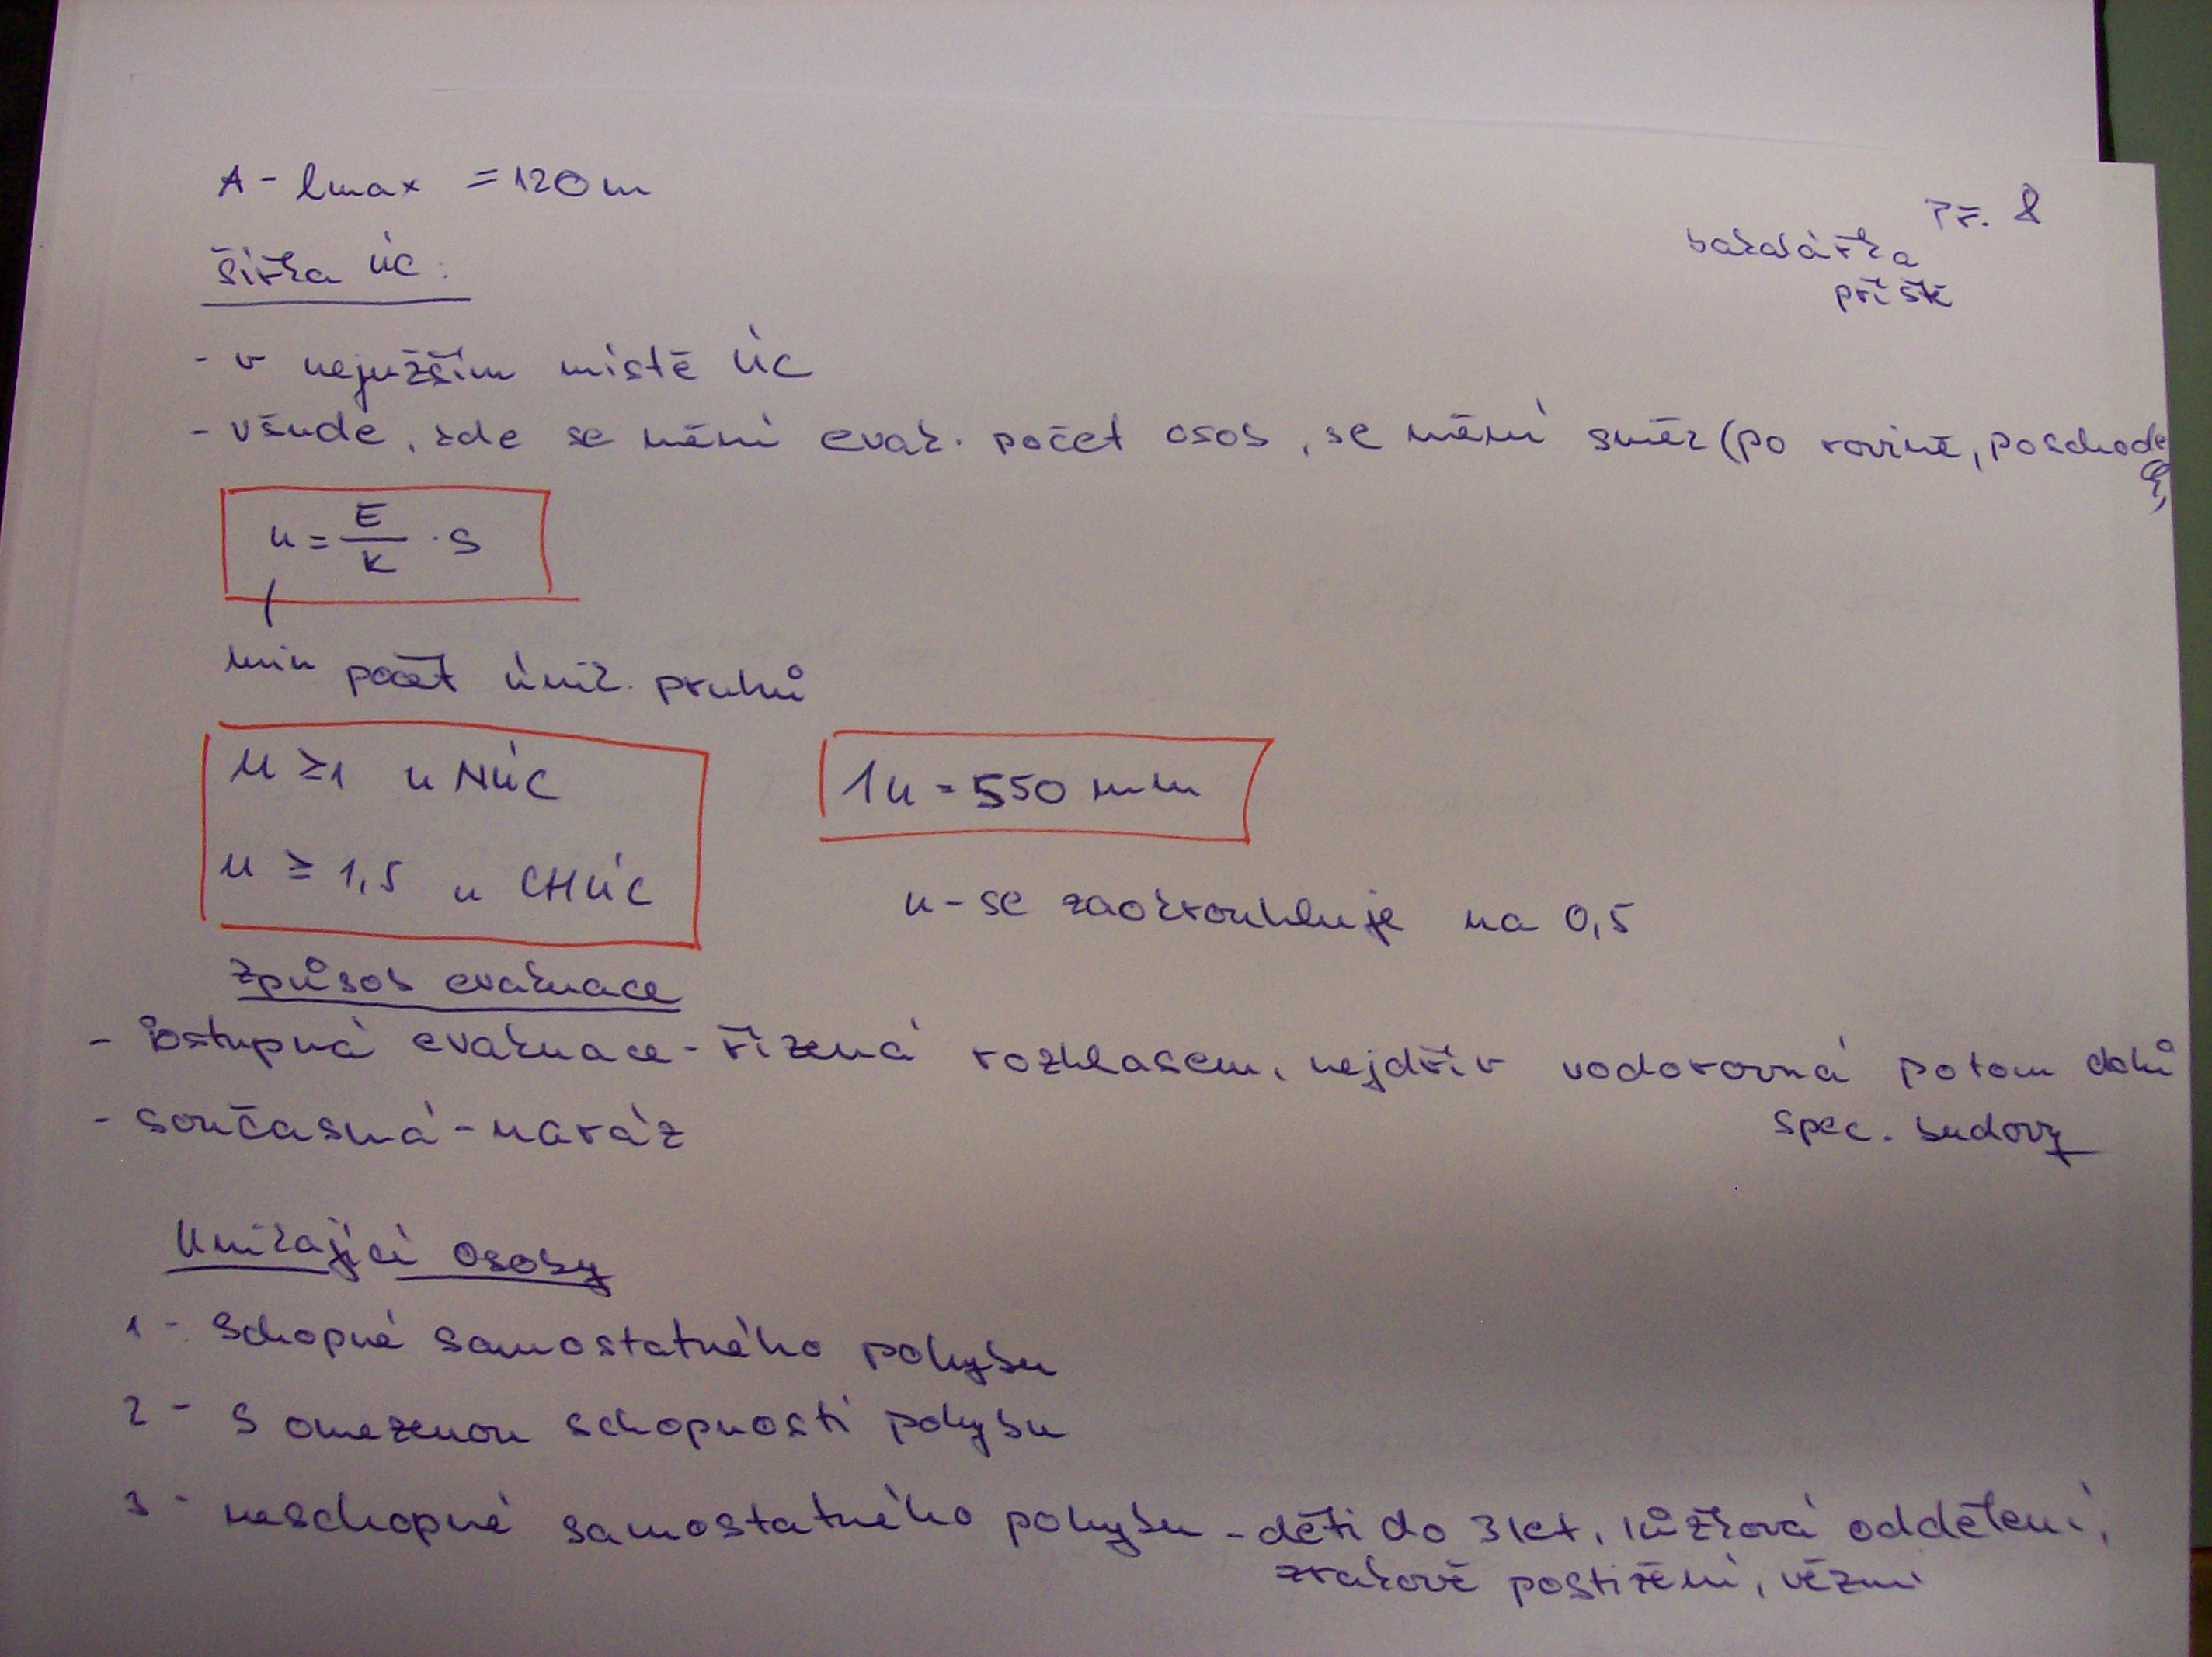 A - lmax = 120 m
Př. 8
bakalářka
příště
šířka ÚC:
- v nejužším místě ÚC
- všude, kde se mění evak. počet osob, se mění směr (po rovině, po schodech,
u = E/K · s
min počet únik. pruhů
u ≥ 1 u NÚC
1u = 550 mm
u ≥ 1,5 u CHÚC
u - se zaokrouhluje na 0,5
Způsob evakuace
- postupná evakuace - řízená rozhlasem, nejdřív vodorovná potom dolů
- současná - naráz
spec. budovy
Unikající osoby
1 - schopné samostatného pohybu
2 - s omezenou schopností pohybu
3 - neschopné samostatného pohybu - děti do 3 let, lůžková oddělení,
zrakově postižení, vězni